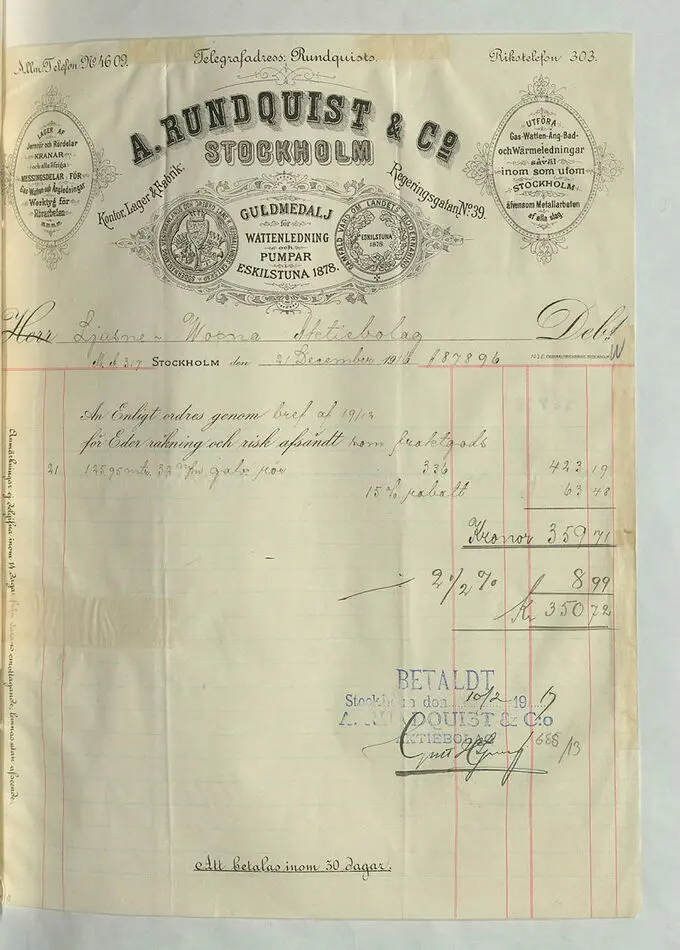 Allm. Telefon No 4609.
Telegrafadress: Rundquists.
Rikstelefon 303.
LAGER AF
Jernrör och Rördelar
KRANAR
och alla öfriga
MESSINGSDELAR FÖR
Gas-Watten och Ångledningar
Werktyg för
Rörarbeten
m.m.m.
A. RUNDQUIST & Co
STOCKHOLM
Kontor, Lager & Fabrik:
Regeringsgatan No 39.
UTFÖRA
Gas-Watten-Ång-Bad-
och Wärmeledningar
såväl
inom som utom
STOCKHOLM
äfvensom Metallarbeten
af alla slag.
GULDMEDALJ
för
WATTENLEDNING
och
PUMPAR
i
ESKILSTUNA 1878.
ESKILSTUNA
1878.
Herr Ljusne-Woxna Aktiebolag
Debt
317 STOCKHOLM den 21 December 1916
An Enligt ordres genom bref af 19/12
för Eder räkning och risk afsändt som fraktgods
21 125,95 mtr. galv rör 336 423 19
15% rabatt 63 48
Kronor 359 71
2 1/2 % 8 99
Kr 350 72
Anmärkningar ej delgifna inom 14 dagar omottagande, lemnas utan afseende.
BETALDT
Stockholm den 10/2 1917
A. RUNDQUIST & C:o
AKTIEBOLAG
Att betalas inom 30 dagar.